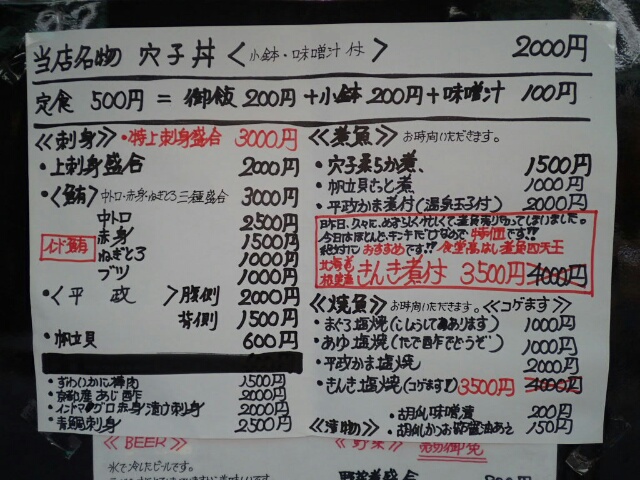 当店名物 穴子丼 <小鉢・味噌汁付> 2000円
定食 500円 = 御飯 200円 + 小鉢 200円 + 味噌汁 100円
≪刺身≫ ・特上刺身盛合 3000円
・上刺身盛合 2000円
・<鮪> 中トロ・赤身・ねぎとろ三種盛合 3000円
中トロ 2500円
インド鮪
赤身 1500円
ねぎとろ 1000円
ブツ 1000円
・<平政> 腹側 2000円
背側 1500円
・帆立貝 600円
・ずわいかに棒肉 1500円
・京都産あじ酢 2000円
・インドマグロ赤身漬け刺身 2000円
・青鯛刺身 2500円
≪煮魚≫ お時間いただきます。
・穴子柔らか煮、 1500円
・帆立貝さっと煮 1000円
・平政かま煮付(温泉玉子付) 2000円
昨日、久々に、めずらしく忙しくて、煮魚売り切ってしまいました。
今日はほとんど、キンキだけなので、特価です!!
絶対におすすめです!! 食堂高はし煮魚四天王
北海道 きんき煮付 3500円 4000円
≪焼魚≫ お時間いただきます。≪コゲます≫
・まぐろ塩焼(こしょうしてあります) 1000円
・あゆ塩焼(たで酢でどうぞ) 1000円
・平政かま塩焼 2000円
・きんき塩焼(コゲます!!) 3500円 4000円
≪漬物≫ ・胡瓜味噌漬 200円
・胡瓜かつお節醤油あえ 150円
≪BEER≫
氷で冷したビールです。
≪野菜≫
野菜盛合